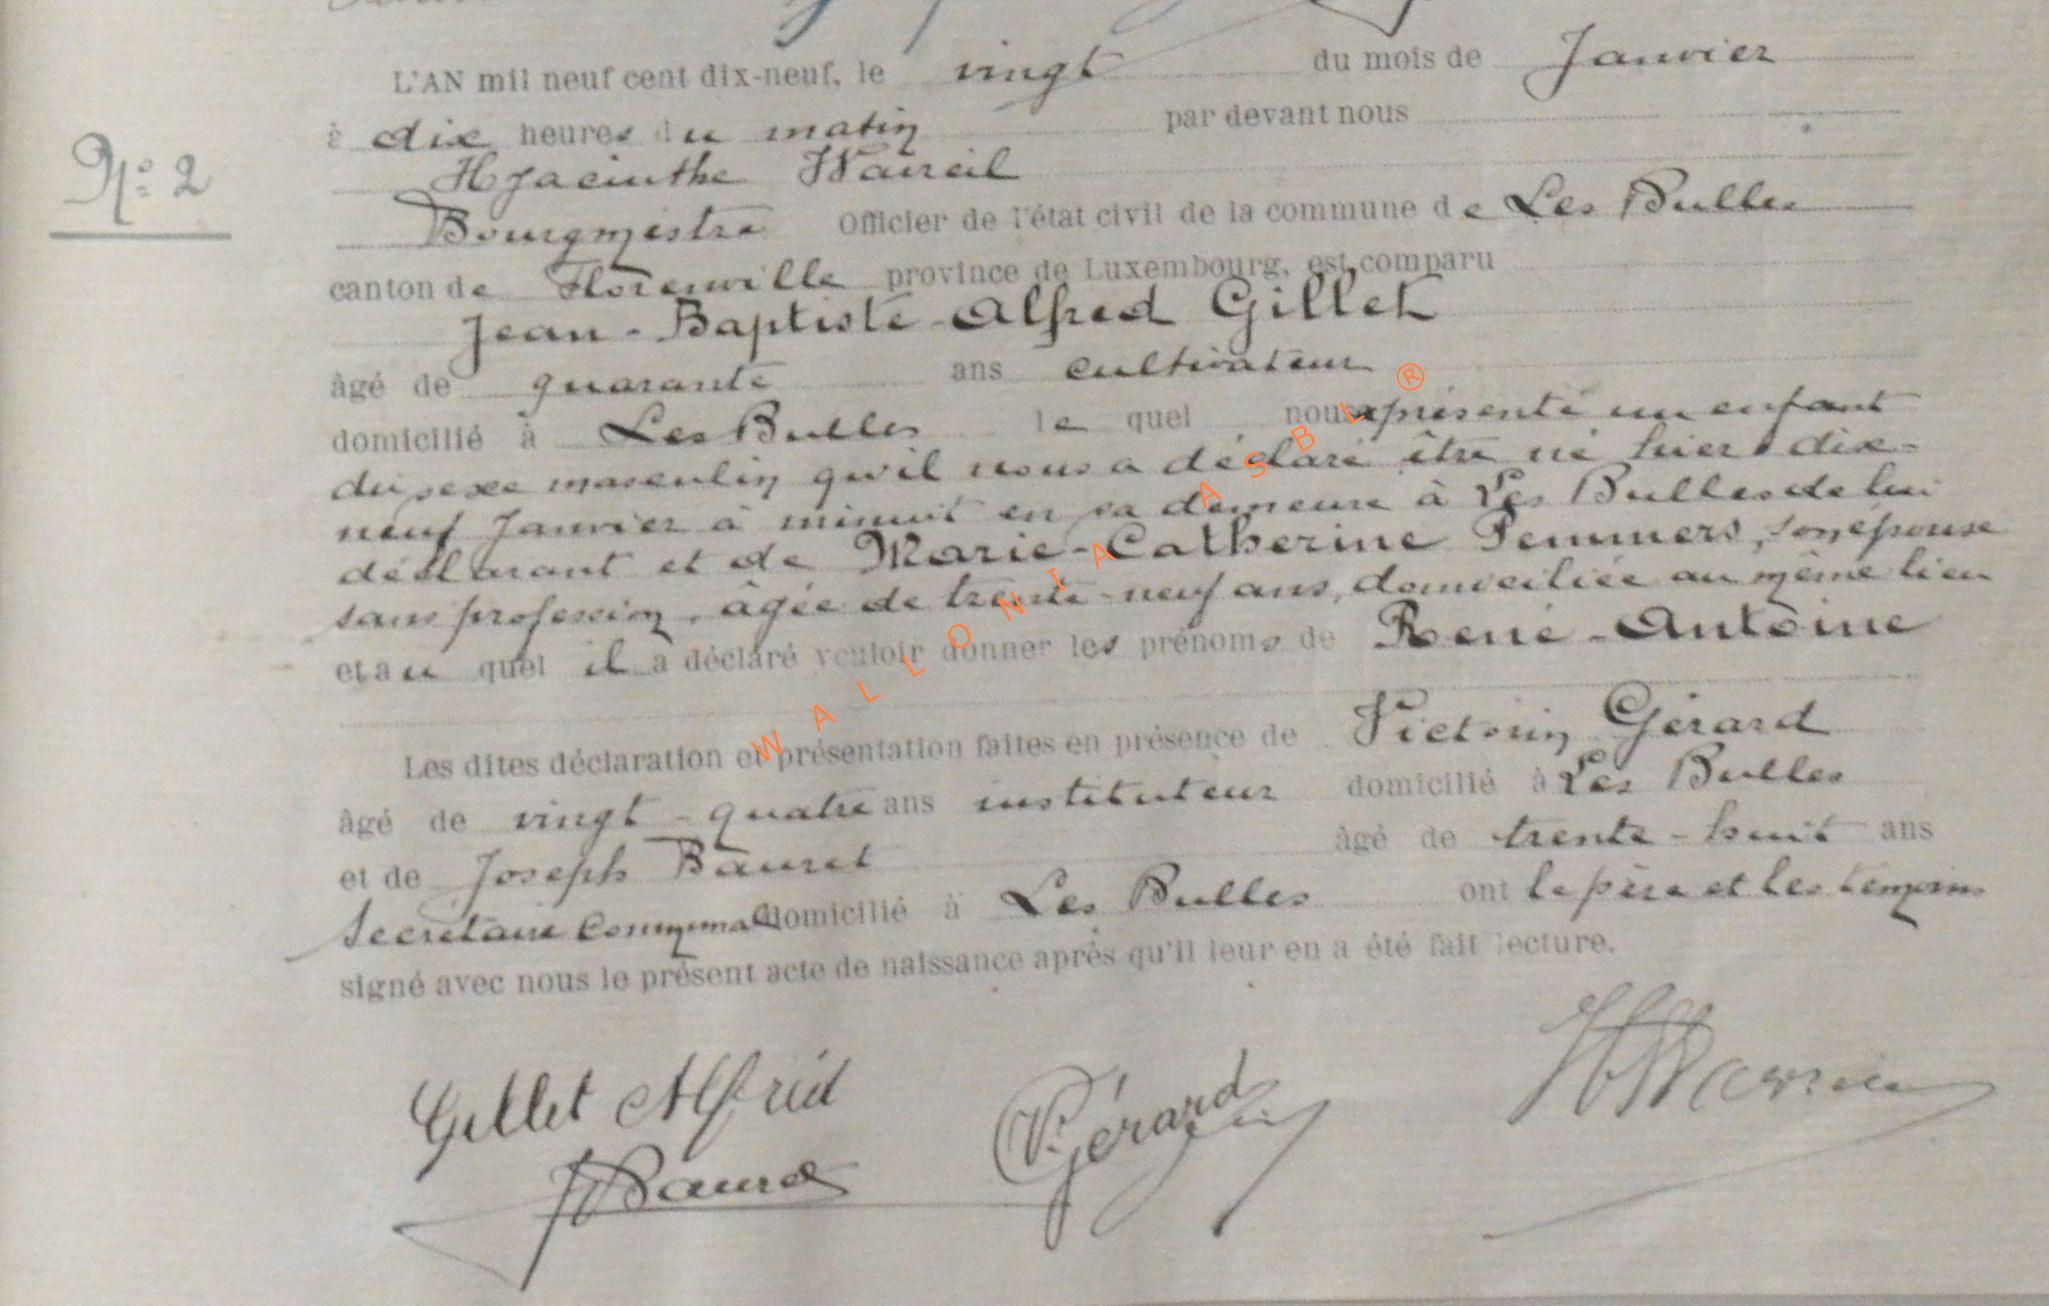 L'AN mil neuf cent dix-neuf, le vingt du mois de Janvier
à dix heures du matin par devant nous
N°: 2
Hyacinthe
Bourgmestre Officier de l'état civil de la commune de Les Bulles
canton de Florenville province de Luxembourg, est comparu
Jean-Baptiste-Alfred Gillet
âgé de quarante ans cultivateur
domicilié à Les Bulles le quel nous a présenté un enfant
du sexe masculin qu'il nous a déclaré être né hier dix-
neuf Janvier à minuit en sa demeure à Les Bulles de lui
déclarant et de Marie-Catherine Pemmers, son épouse
sans profession, âgée de trente-neuf ans, domiciliée au même lieu
et au quel il a déclaré vouloir donner les prénoms de René-Antoine
Les dites déclaration et présentation faites en présence de Victorin Gérard
âgé de vingt-quatre ans instituteur domicilié à Les Bulles
et de Joseph Bauret âgé de trente-huit ans
Secrétaire Communal domicilié à Les Bulles ont le père et les témoins
signé avec nous le présent acte de naissance après qu'il leur en a été fait lecture.
Gillet Alfred
V. Gérard
J Bauret
WALLONIA ASBL ®